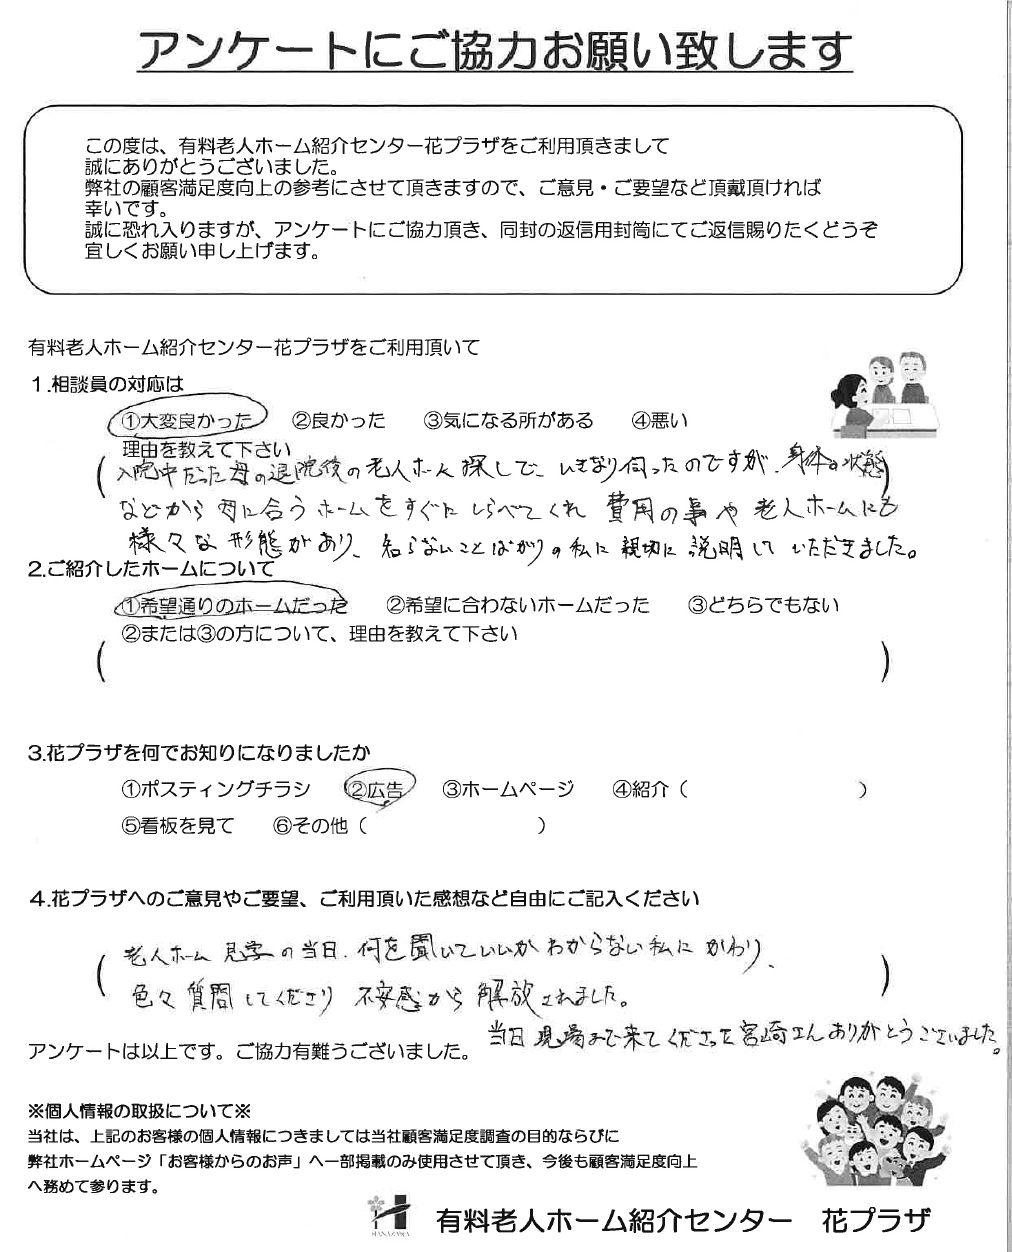 アンケートにご協力お願い致します
この度は、有料老人ホーム紹介センター花プラザをご利用頂きまして
誠にありがとうございました。
弊社の顧客満足度向上の参考にさせて頂きますので、ご意見・ご要望など頂戴頂ければ
幸いです。
誠に恐れ入りますが、アンケートにご協力頂き、同封の返信用封筒にてご返信賜りたくどうぞ
宜しくお願い申し上げます。
有料老人ホーム紹介センター花プラザをご利用頂いて
1.相談員の対応は
①大変良かった ②良かった ③気になる所がある ④悪い
理由を教えて下さい
(入院中だった母の退院後の老人ホーム探しで、いきなり伺ったのですが、身体の状態)
などから母に合うホームをすぐにしらべてくれ 費用の事や老人ホームにも
様々な形態があり、知らないことばかりの私に親切に説明していただきました。
2.ご紹介したホームについて
①希望通りのホームだった ②希望に合わないホームだった ③どちらでもない
②または③の方について、理由を教えて下さい
( )
3.花プラザを何でお知りになりましたか
①ポスティングチラシ ②広告 ③ホームページ ④紹介( )
⑤看板を見て ⑥その他( )
4.花プラザへのご意見やご要望、ご利用頂いた感想など自由にご記入ください
(老人ホーム見学の当日、何を聞いていいかわからない私にかわり、
色々質問してくださり 不安感から解放されました。)
当日現場まで来てくださった宮崎さんありがとうございました。
アンケートは以上です。ご協力有難うございました。
※個人情報の取扱について※
当社は、上記のお客様の個人情報につきましては当社顧客満足度調査の目的ならびに
弊社ホームページ「お客様からのお声」へ一部掲載のみ使用させて頂き、今後も顧客満足度向上
へ務めて参ります。
HANAZAWA
有料老人ホーム紹介センター 花プラザ